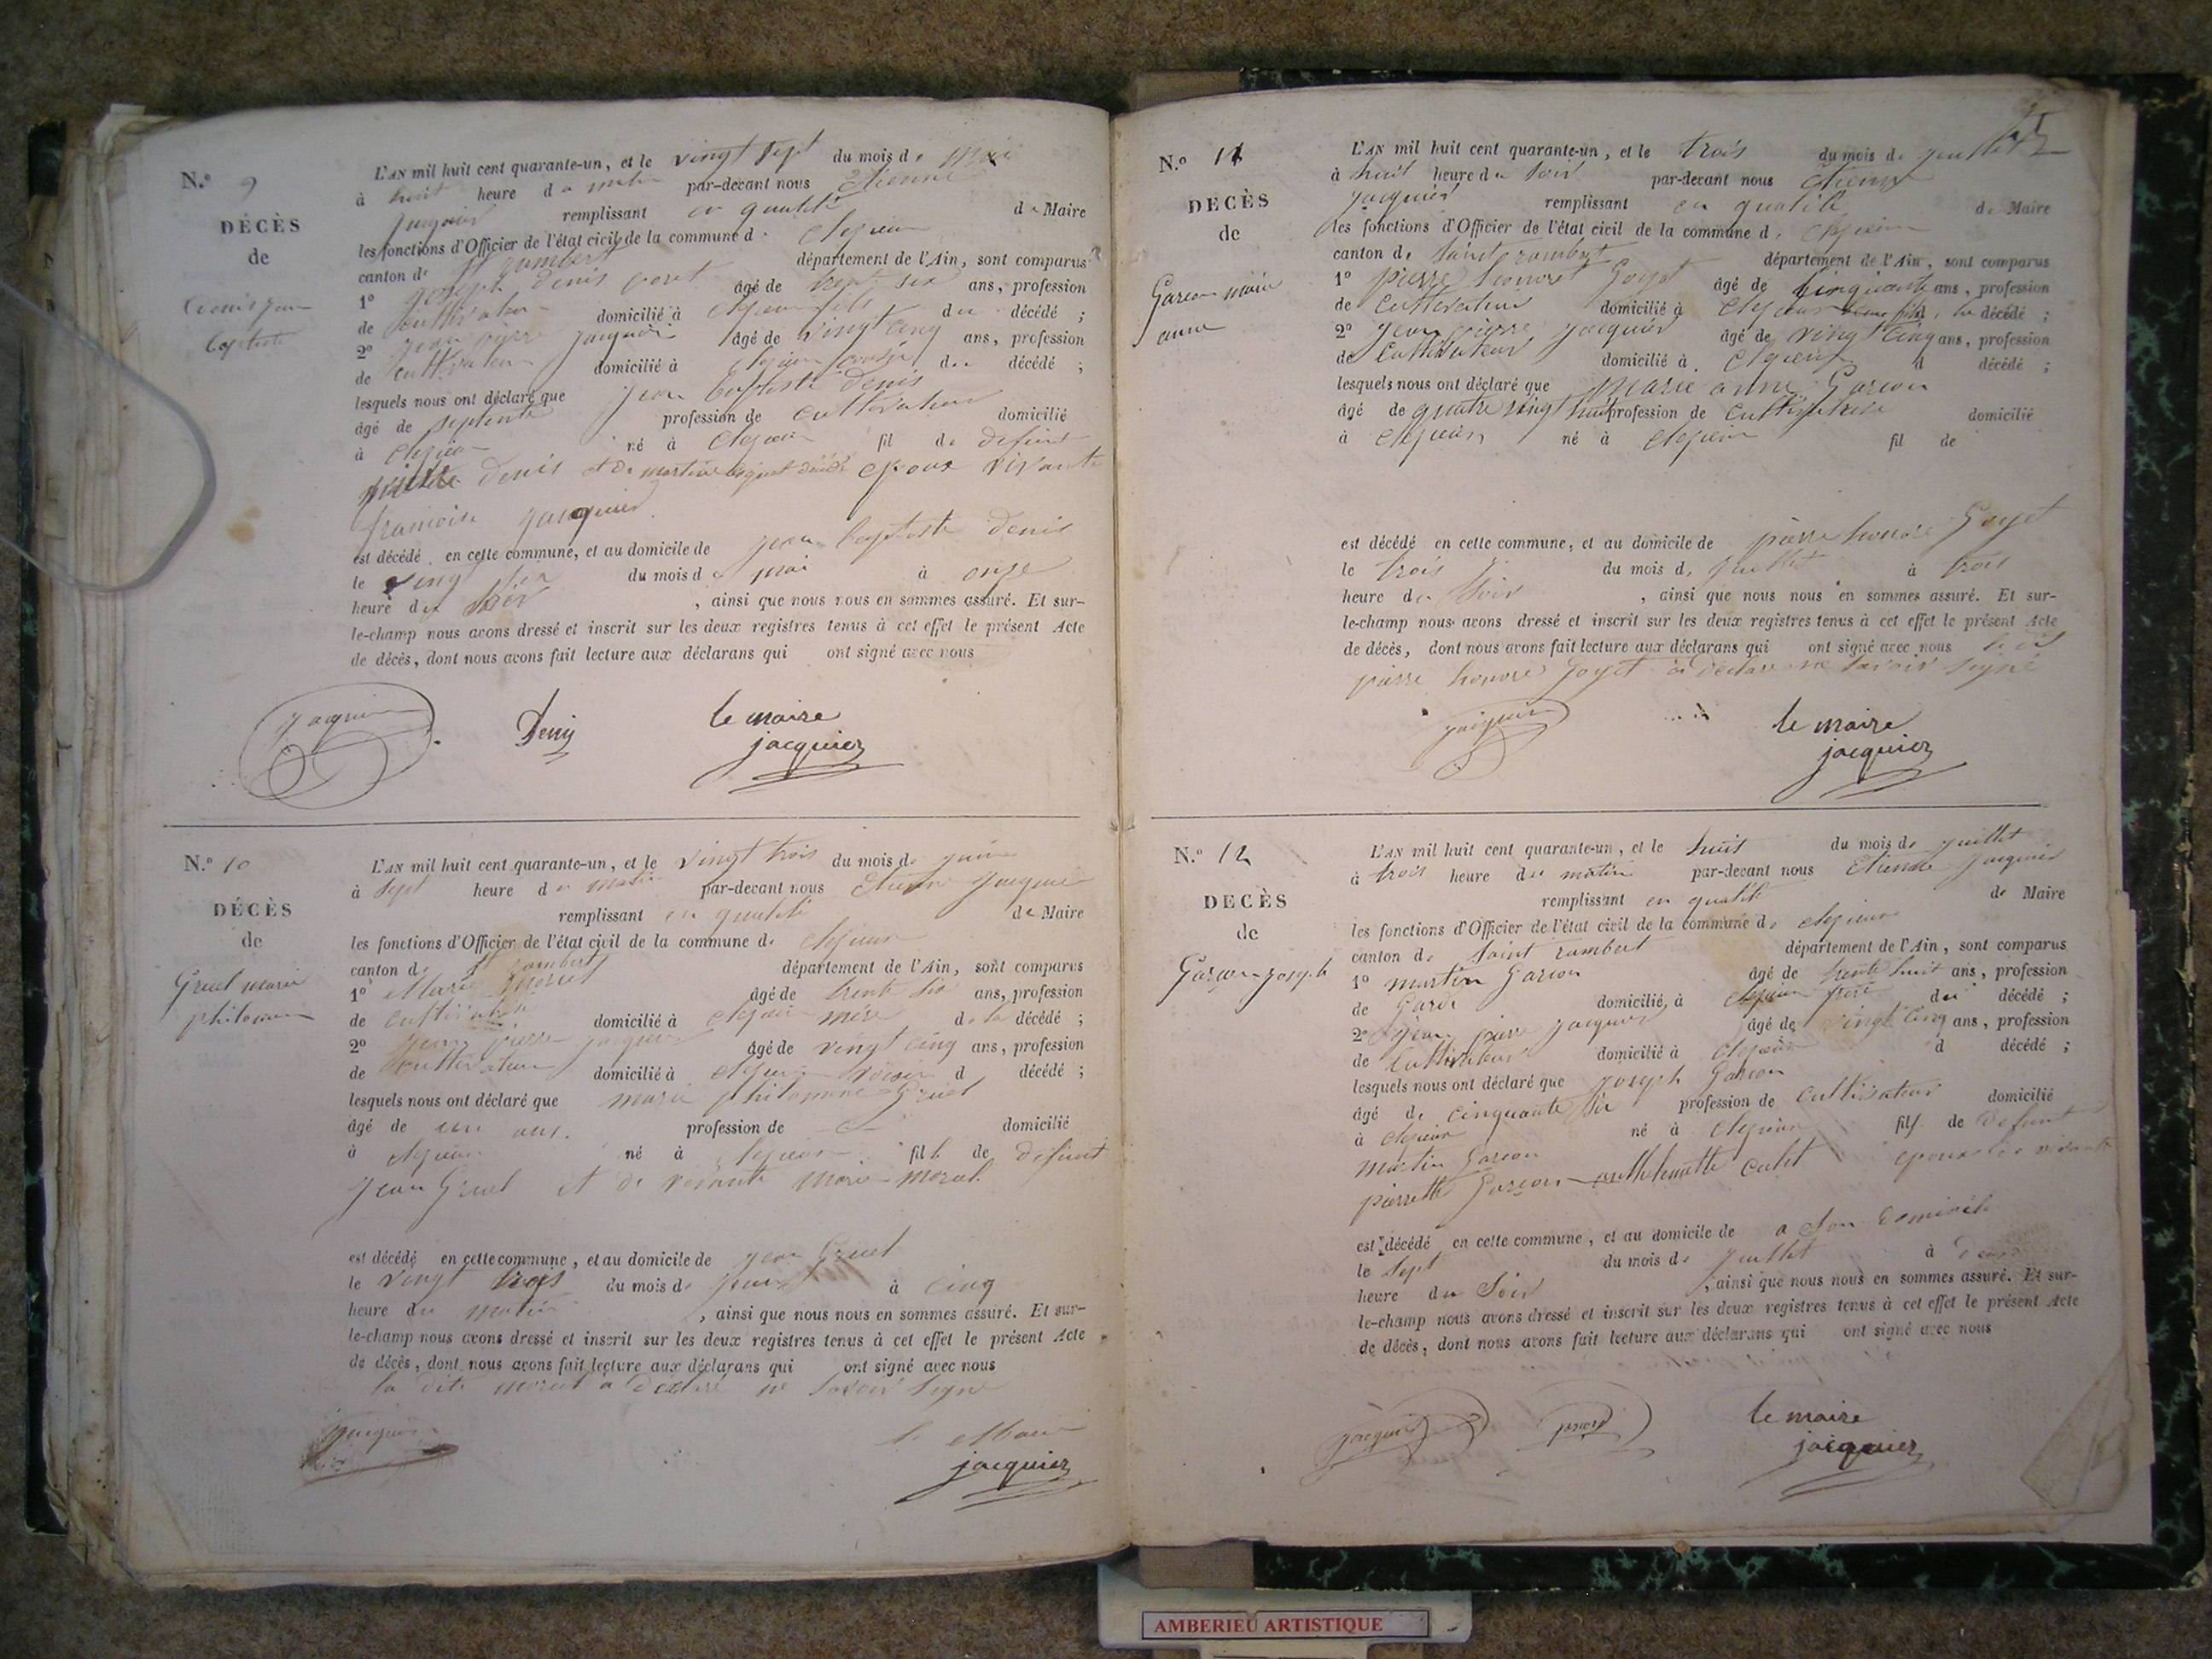 N.º 9
DÉCÈS
de
Denis jean
baptiste
L'AN mil huit cent quarante-un, et le vingt sept du mois de Mai
à huit heure du matin par-devant nous Etienne
Jacquier remplissant en qualité de Maire
les fonctions d'Officier de l'état civil de la commune d
canton de St Rambert département de l'Ain, sont comparus
1º joseph Denis âgé de trente six ans, profession
de cultivateur domicilié à fils du décédé ;
2º jean pierre jacquier âgé de vingt cinq ans, profession
de cultivateur domicilié à du décédé ;
lesquels nous ont déclaré que jean baptiste denis
âgé de septente profession de cultivateur domicilié
à né à fil de defunt
denis et de martine époux vivante
francoise jacquier
est décédé en cette commune, et au domicile de jean baptiste denis
le vingt six du mois de mai à onze
heure du soir , ainsi que nous nous en sommes assuré. Et sur-
le-champ nous avons dressé et inscrit sur les deux registres tenus à cet effet le présent Acte
de décès, dont nous avons fait lecture aux déclarans qui ont signé avec nous
jacquier Denis le maire
jacquier
N.º 10
DÉCÈS
de
Gruel marie
philomene
L'AN mil huit cent quarante-un, et le vingt trois du mois de juin
à sept heure du matin par-devant nous Etienne jacquier
remplissant en qualité de Maire
les fonctions d'Officier de l'état civil de la commune de
canton de St Rambert département de l'Ain, sont comparus
1º Marie morel âgé de trente six ans, profession
de domicilié à mère de la décédé ;
2º jean pierre jacquier âgé de vingt cinq ans, profession
de cultivateur domicilié à voisin d décédé ;
lesquels nous ont déclaré que marie philomene Gruel
âgé de un ans. profession de domicilié
à né à fill de defunt
jean Gruel et de vivante marie morel.
est décédé en cette commune, et au domicile de jean Gruel
le vingt trois du mois de juin à cinq
heure du matin , ainsi que nous nous en sommes assuré. Et sur-
le-champ nous avons dressé et inscrit sur les deux registres tenus à cet effet le présent Acte
de décès, dont nous avons fait lecture aux déclarans qui ont signé avec nous
la dite morel a declaré ne savoir signé
jacquier le Maire
jacquier
N.º 11
DECÈS
de
Garcon marie
anne
L'AN mil huit cent quarante-un, et le trois du mois de juillet
à huit heure du soir par-devant nous Etienne
jacquier remplissant en qualité de Maire
les fonctions d'Officier de l'état civil de la commune de
canton de saint rambert département de l'Ain, sont comparus
1º pierre honoré Goyet âgé de cinquante ans, profession
de cultivateur domicilié à la décédé ;
2º jean pierre jacquier âgé de vingt cinq ans, profession
de cultivateur domicilié à d décédé ;
lesquels nous ont déclaré que marie anne Garcon
âgé de quatre vingt huit profession de cultivatrice domicilié
à né à fil de
est décédé en cette commune, et au domicile de pierre honoré Goyet
le trois du mois de juillet à trois
heure du soir , ainsi que nous nous en sommes assuré. Et sur-
le-champ nous avons dressé et inscrit sur les deux registres tenus à cet effet le présent Acte
de décès, dont nous avons fait lecture aux déclarans qui ont signé avec nous
pierre honoré Goyet a déclaré ne savoir signé
jacquier le maire
jacquier
N.º 12
DECÈS
de
Garcon joseph
L'AN mil huit cent quarante-un, et le huit du mois de juillet
à trois heure du matin par-devant nous Etienne jacquier
remplissant en qualité de Maire
les fonctions d'Officier de l'état civil de la commune de
canton de saint rambert département de l'Ain, sont comparus
1º martin Garcon âgé de trente huit ans, profession
de Garde domicilié à du décédé ;
2º jean pierre jacquier âgé de vingt cinq ans, profession
de cultivateur domicilié à d décédé ;
lesquels nous ont déclaré que joseph Garcon
âgé de cinquante six profession de cultivateur domicilié
à né à fils de defunt
martin Garcon
pierrette Garcon
est décédé en cette commune, et au domicile de a son domicile
le sept du mois de juillet à
heure du soir , ainsi que nous nous en sommes assuré. Et sur-
le-champ nous avons dressé et inscrit sur les deux registres tenus à cet effet le présent Acte
de décès, dont nous avons fait lecture aux déclarans qui ont signé avec nous
jacquier le maire
jacquier
AMBERIEU ARTISTIQUE